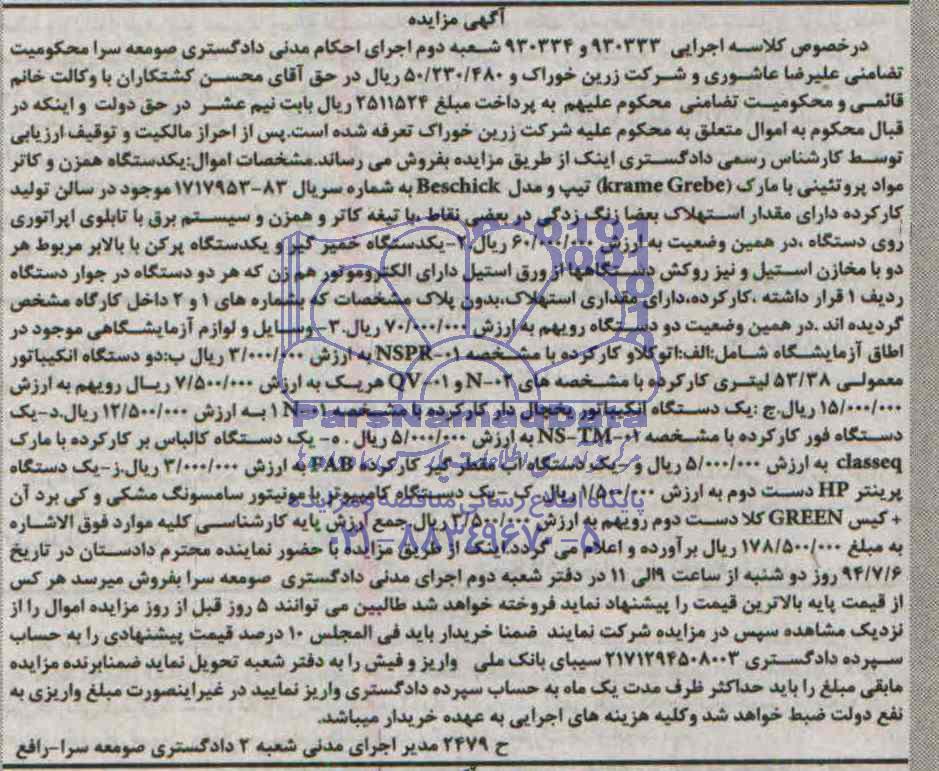 آگهی مزایده
درخصوص کلاسه اجرایی ۹۳۰۳۳۳ و ۹۳۰۳۳۴ شعبه دوم اجرای احکام مدنی دادگستری صومعه سرا محکومیت
تضامنی علیرضا عاشوری و شرکت زرین خوراک و ۵۰/۲۳۰/۴۸۰ ریال در حق آقای محسن کشتکاران با وکالت خانم
قائمی و محکومیت تضامنی محکوم علیهم به پرداخت مبلغ ۲۵۱۱۵۲۴ ریال بابت نیم عشر در حق دولت و اینکه در
قبال محکوم به اموال متعلق به محکوم علیه شرکت زرین خوراک تعرفه شده است.پس از احراز مالکیت و توقیف ارزیابی
توسط کارشناس رسمی دادگستری اینک از طریق مزایده بفروش می رساند.مشخصات اموال:یکدستگاه همزن و کاتر
مواد پروتئینی با مارک (krame Grebe) تیپ و مدل Beschick به شماره سریال ۸۳-۱۷۱۷۹۵۳ موجود در سالن تولید
کارکرده دارای مقدار استهلاک بعضا زنگ زدگی در بعضی نقاط ،با تیغه کاتر و همزن و سیستم برق با تابلوی اپراتوری
روی دستگاه ،در همین وضعیت به ارزش ۶۰/۰۰۰/۰۰۰ ریال.۲-یکدستگاه خمیر گیر و یکدستگاه پرکن با بالابر مربوط هر
دو با مخازن استیل و نیز روکش دستگاهها از ورق استیل دارای الکتروموتور هم زن که هر دو دستگاه در جوار دستگاه
ردیف ۱ قرار داشته ،کارکرده،دارای مقداری استهلاک،بدون پلاک مشخصات که بشماره های ۱ و ۲ داخل کارگاه مشخص
گردیده اند .در همین وضعیت دو دستگاه رویهم به ارزش ۷۰/۰۰۰/۰۰۰ ریال.۳- وسایل و لوازم آزمایشگاهی موجود در
اطاق آزمایشگاه شامل:الف:اتوکلاو کارکرده با مشخصه NSPR-۰۱ به ارزش ۳/۰۰۰/۰۰۰ ریال ب:دو دستگاه انکیباتور
معمولی ۵۳/۳۸ لیتری کارکرده با مشخصه های N-۰۲ و QV-۰۱ هریک به ارزش ۷/۵۰۰/۰۰۰ ریال رویهم به ارزش
۱۵/۰۰۰/۰۰۰ ریال.ج :یک دستگاه انکیباتور یخچال دار کارکرده با مشخصه N-۰۱ ۱ به ارزش ۱۲/۵۰۰/۰۰۰ ریال.د-یک
دستگاه فور کارکرده با مشخصه NS-TM-۰۲ به ارزش ۵/۰۰۰/۰۰۰ ریال . ه- یک دستگاه کالباس بر کارکرده با مارک
classeq به ارزش ۵/۰۰۰/۰۰۰ ریال و-یکدستگاه آب مقطر گیر کارکرده FAB به ارزش ۳/۰۰۰/۰۰۰ ریال.ز-یک دستگاه
پرینتر HP دست دوم به ارزش ۱/۵۰۰/۰۰۰ ریال ک-یک دستگاه کامپیوتر با مونیتور سامسونگ مشکی و کی برد آن
+ کیس GREEN کلا دست دوم رویهم به ارزش ۳/۵۰۰/۰۰۰ ریال جمع ارزش پایه کارشناسی کلیه موارد فوق الاشاره
به مبلغ ۱۷۸/۵۰۰/۰۰۰ ریال برآورده و اعلام می گردد.اینک از طریق مزایده با حضور نماینده محترم دادستان در تاریخ
۹۴/۷/۶ روز دو شنبه از ساعت ۹الی ۱۱ در دفتر شعبه دوم اجرای مدنی دادگستری صومعه سرا بفروش میرسد هر کس
از قیمت پایه بالاترین قیمت را پیشنهاد نماید فروخته خواهد شد طالبین می توانند ۵ روز قبل از روز مزایده اموال را از
نزدیک مشاهده سپس در مزایده شرکت نمایند ضمنا خریدار باید فی المجلس ۱۰ درصد قیمت پیشنهادی را به حساب
سپرده دادگستری ۲۱۷۱۲۹۴۵۰۸۰۰۳ سیبای بانک ملی واریز و فیش را به دفتر شعبه تحویل نماید ضمنابرنده مزایده
مابقی مبلغ را باید حداکثر ظرف مدت یک ماه به حساب سپرده دادگستری واریز نمایید در غیراینصورت مبلغ واریزی به
نفع دولت ضبط خواهد شد وکلیه هزینه های اجرایی به عهده خریدار میباشد.
ح ۲۴۷۹ مدیر اجرای مدنی شعبه ۲ دادگستری صومعه سرا-رافع
ParsNamadData
پایگاه اطلاع رسانی مناقصه و مزایده
۰۲۱-۸۸۳۴۹۶۷۰-۵